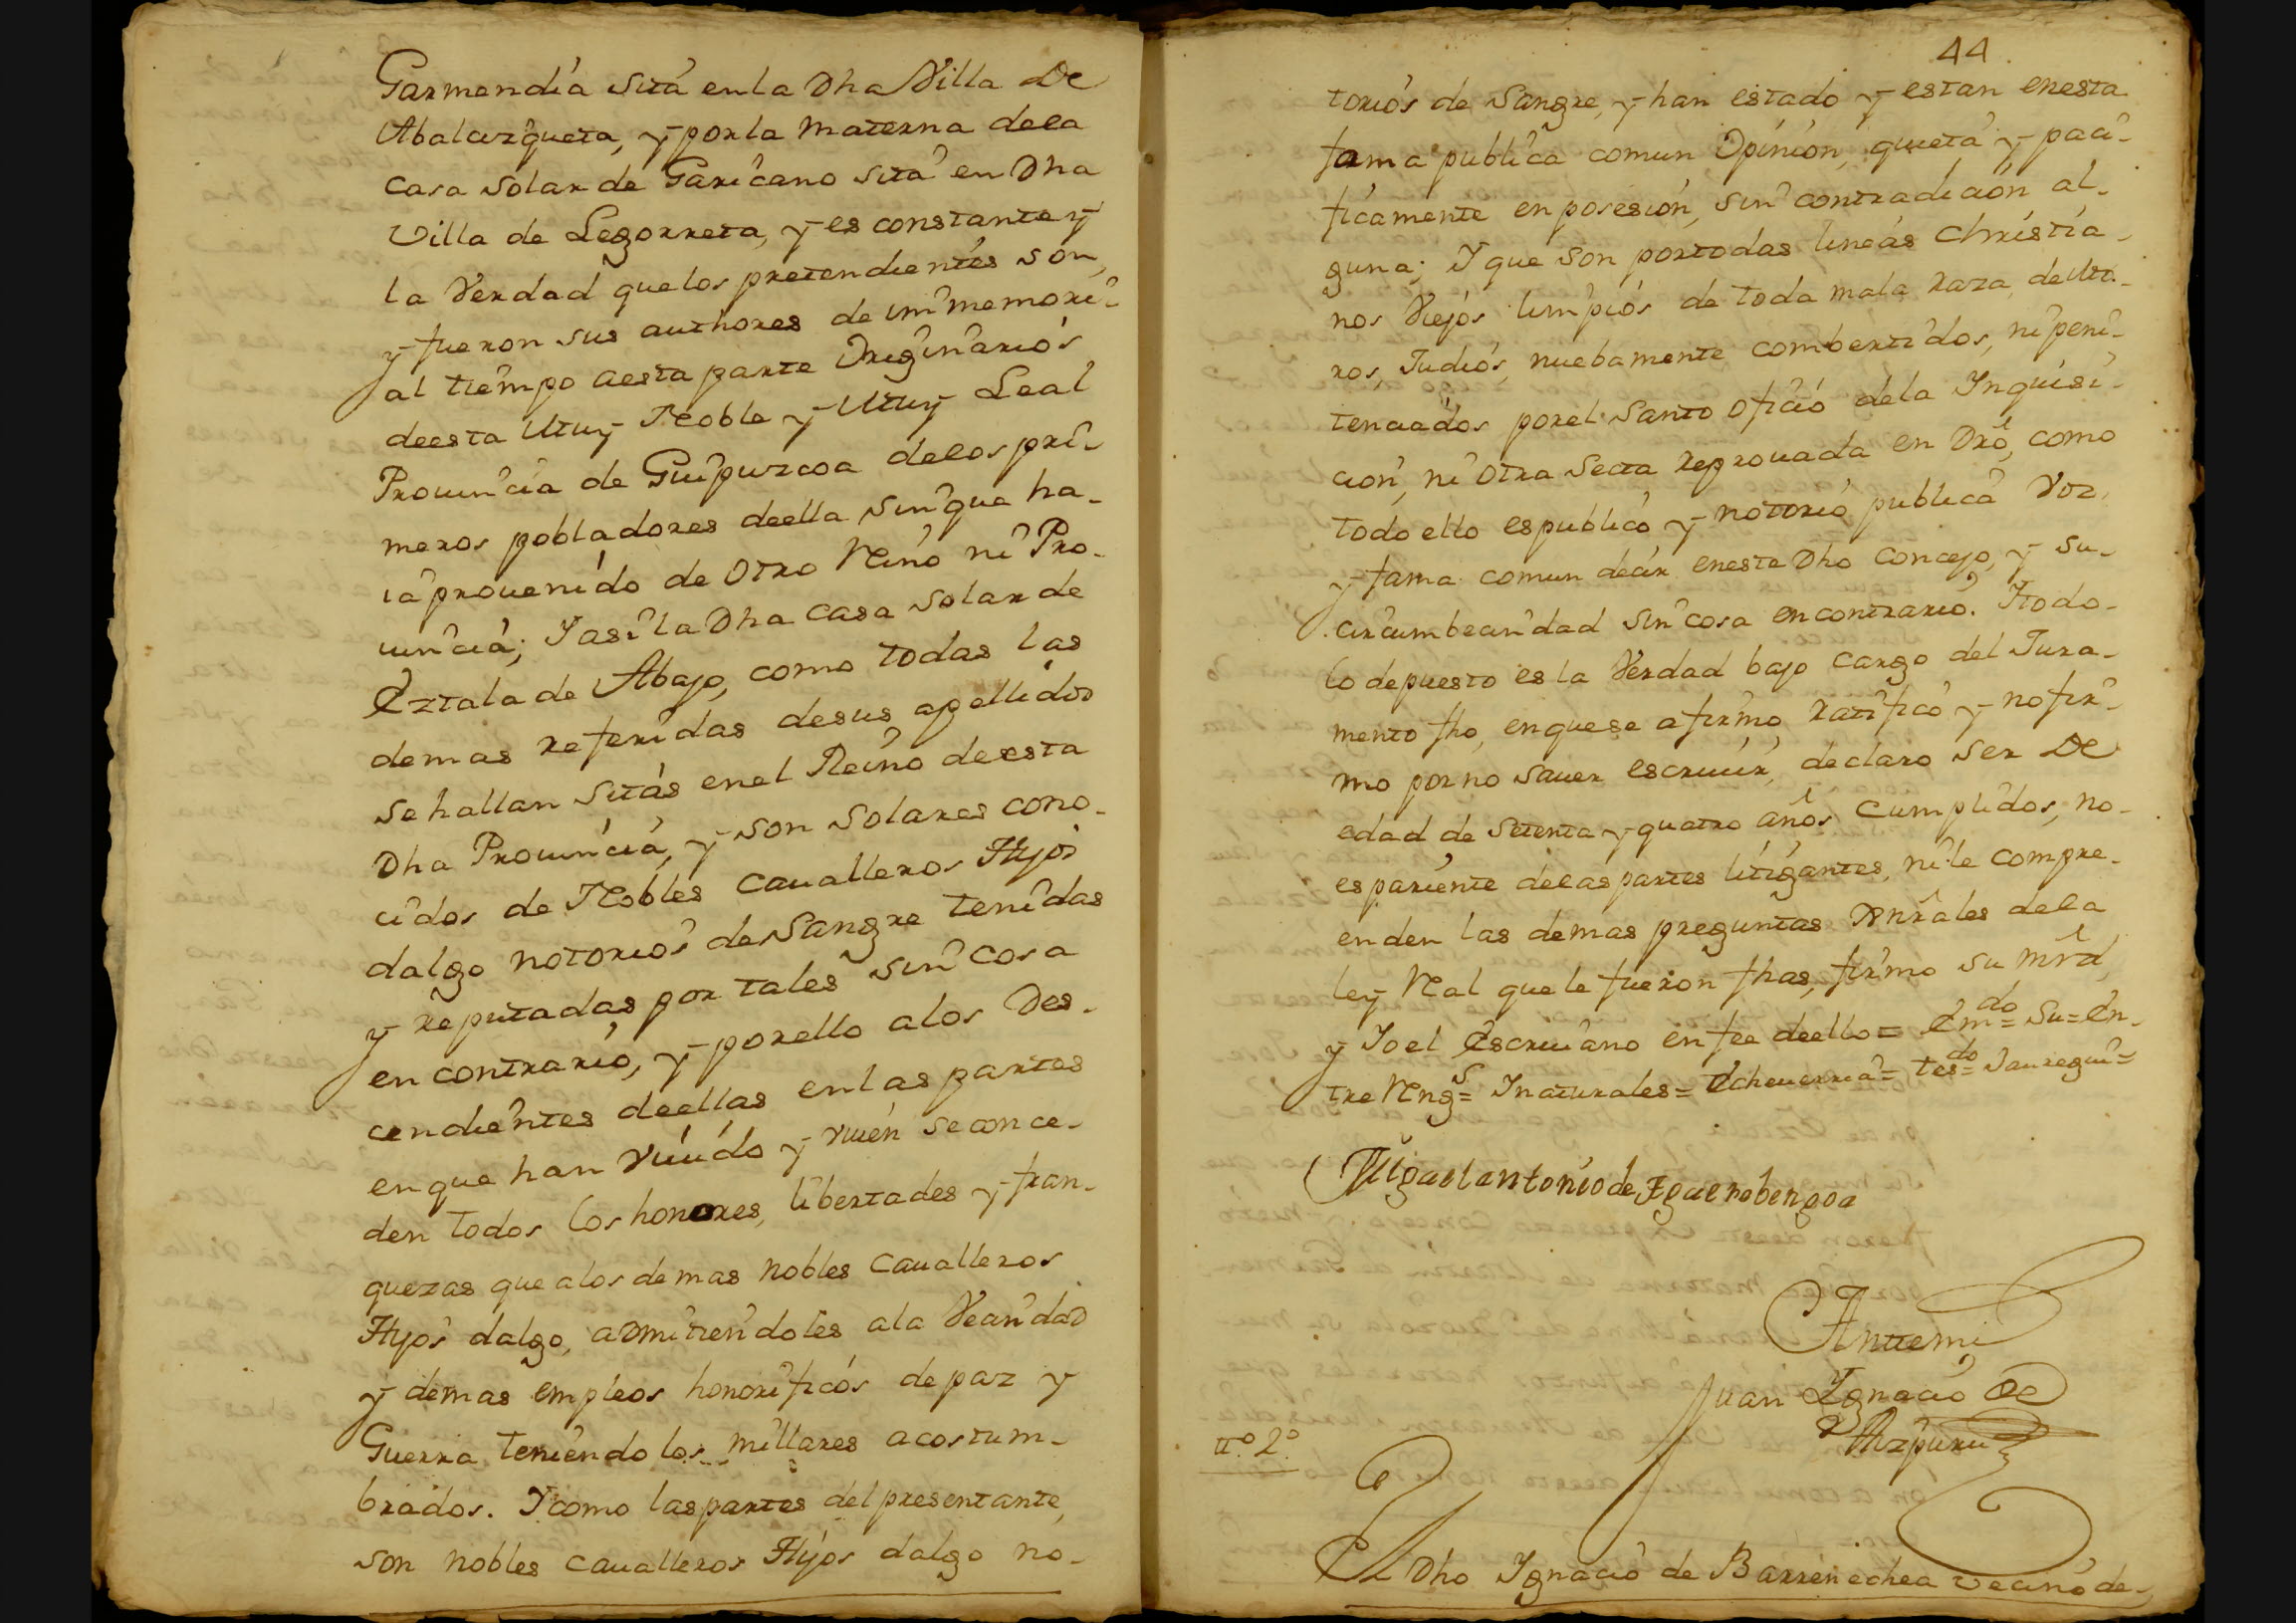 Garmendia Sita en la Dha Villa De
Abalcizqueta, y por la materna de la
Casa Solar de Garicano Sita en Dha
Villa de Legorreta, y es constante y
la Verdad que los pretendientes son,
y fueron sus authores de immemori-
al tiempo aesta parte Originarios
deesta Muy Noble y Muy Leal
Prouincia de Guipuzcoa delos pri-
meros pobladores deella sin que ha-
ia prouenido de Otro Reino ni Pro-
uincia; Y asi la Dha Casa Solar de
Eztala de Abajo, como todas las
demas referidas desus apellidos
se hallan Sitas en el Reino deesta
Dha Prouincia, y son Solares cono-
cidos de Nobles Caualleros Hijos
dalgo notorios de Sangre tenidas
y reputadas por tales sin cosa
en contrario, y por ello alos Des-
cendientes deellas en las partes
en que han viuido y viuen se conce-
den todos los honores, libertades y fran-
quezas que alos demas nobles Caualleros
Hijos dalgo, admitiendoles ala Vecindad
y demas empleos honorificos de paz y
Guerra teniendo los millares acostum-
brados. Y como las partes del presentante,
son nobles Caualleros Hijos dalgo no-
44
torios de Sangre, y han estado y estan en esta
fama publica comun Opinion, quieta y paci-
ficamente en posesion, sin contradicion al-
guna; Y que son por todas lineas Christia-
nos Viejos limpios de toda mala raza de Mo-
ros, Judios, nuebamente combertidos, ni peni-
tenciados por el Santo Oficio dela Inquisi-
cion, ni Otra Secta reprouada en Dro, como
todo ello es publico y notorio publica Voz,
y fama comun decir en este Dho Concejo, y su
circumbecindad sin cosa en contrario. Y todo
lo depuesto es la Verdad bajo cargo del Jura-
mento fho, en que se afirmo, ratifico y no fir-
mo por no sauer escriuir, declaro Ser De
edad de Setenta y quatro años Cumplidos, no
es pariente de las partes litigantes, ni le compre-
enden las demas preguntas Genrales dela
ley Real que le fueron fhas, firmo su mrd,
y Yo el Escriuano en fee deello = Emdo = Su = En-
tre Rengs = Y naturales = Echeuerria = tesdo = Jauregui =
Miguel antonio de Eguenobengoa
Ante mi
Juan Ignacio De
Azpuru
tto. 2o.
El Dho Ignacio de Barrenechea vecino de